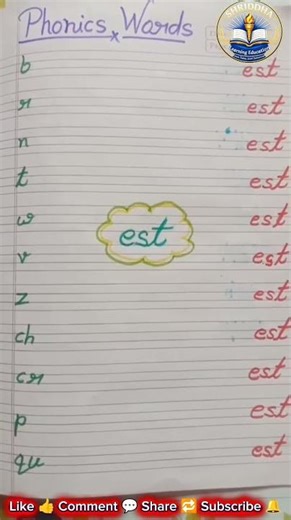 Phonics Words
SHRIDDHA
Learning Education
b est
r est
n est
t est
w est
est
v est
z est
ch est
cr est
p est
qu est
Like 👍 Comment 💬 Share 🔁 Subscribe 🔔